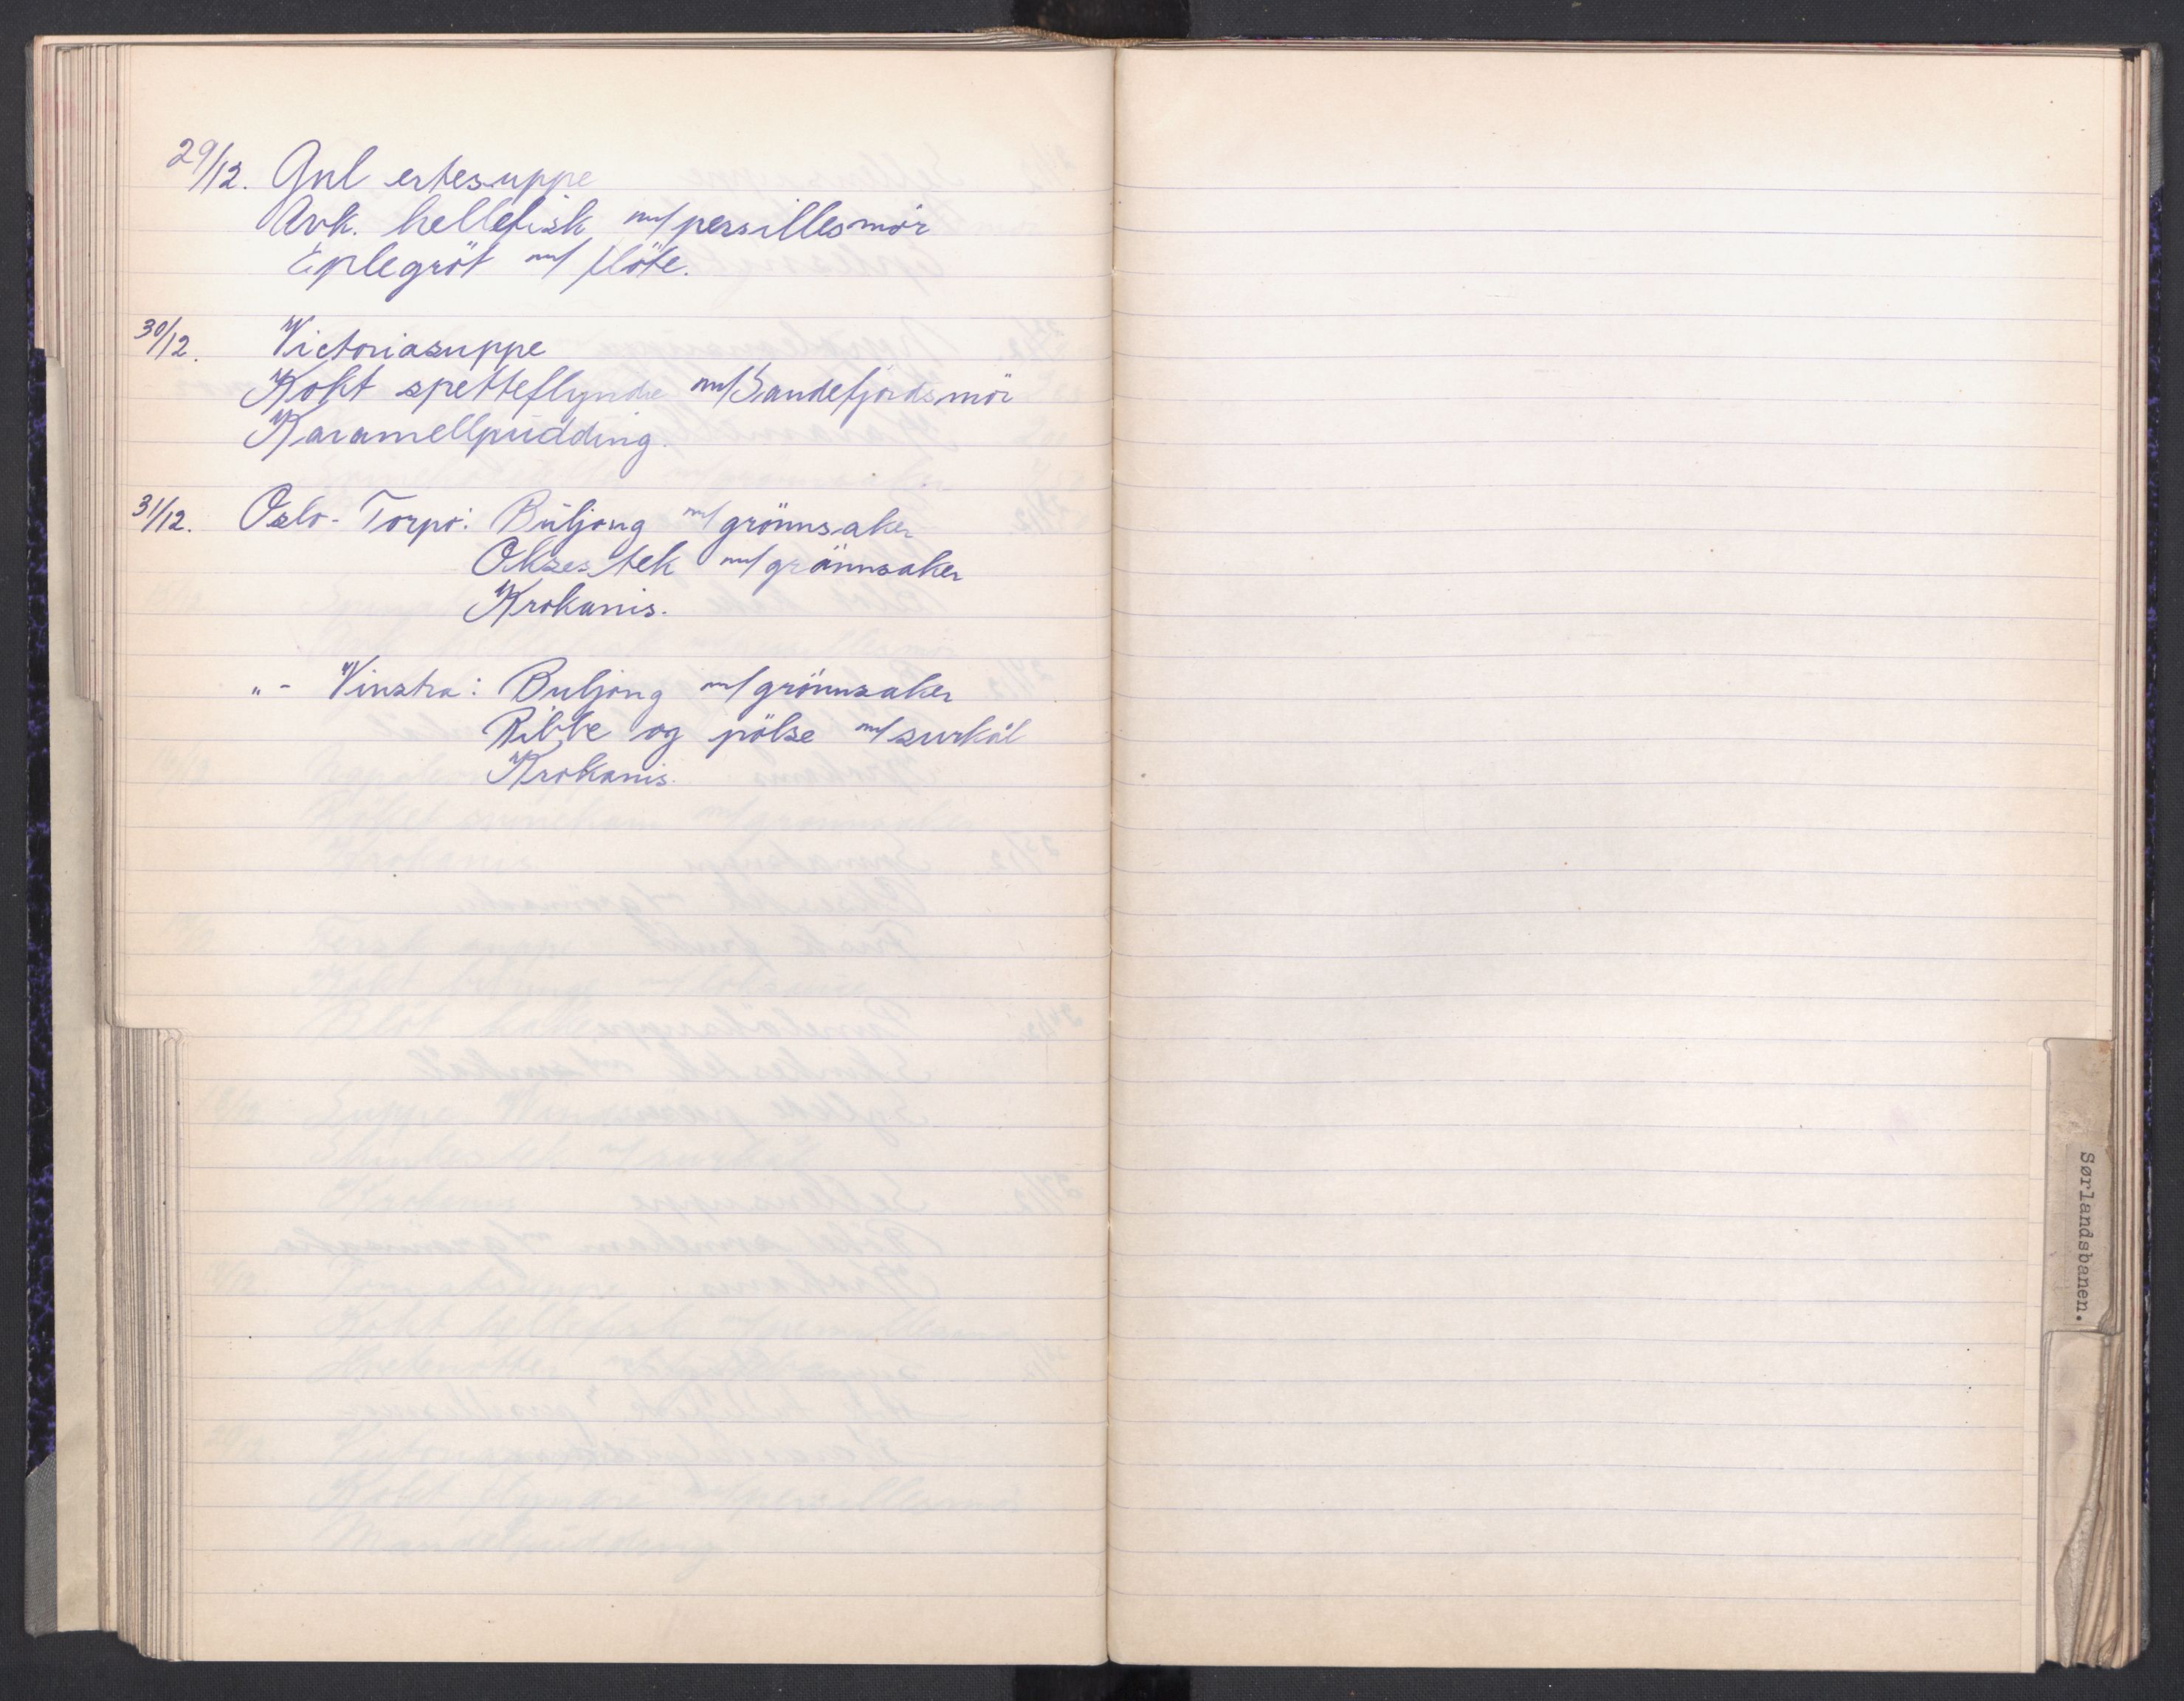 29/12. Gul ertesuppe
Avk. hellefisk m/persillesmör
Eplegröt m/ flöte.
30/12. Victoriasuppe
Kokt spetteflyndre m/Sandefjordsmör
Karamellpudding.
31/12. Oslo - Torpo: Buljong m/grönnsaker
Oksestek m/grönnsaker
Krokanis.
" - Vinstra: Buljong m/grönnsaker
Ribbe og pölse m/surkål
Krokanis.
Sørlandsbanen.